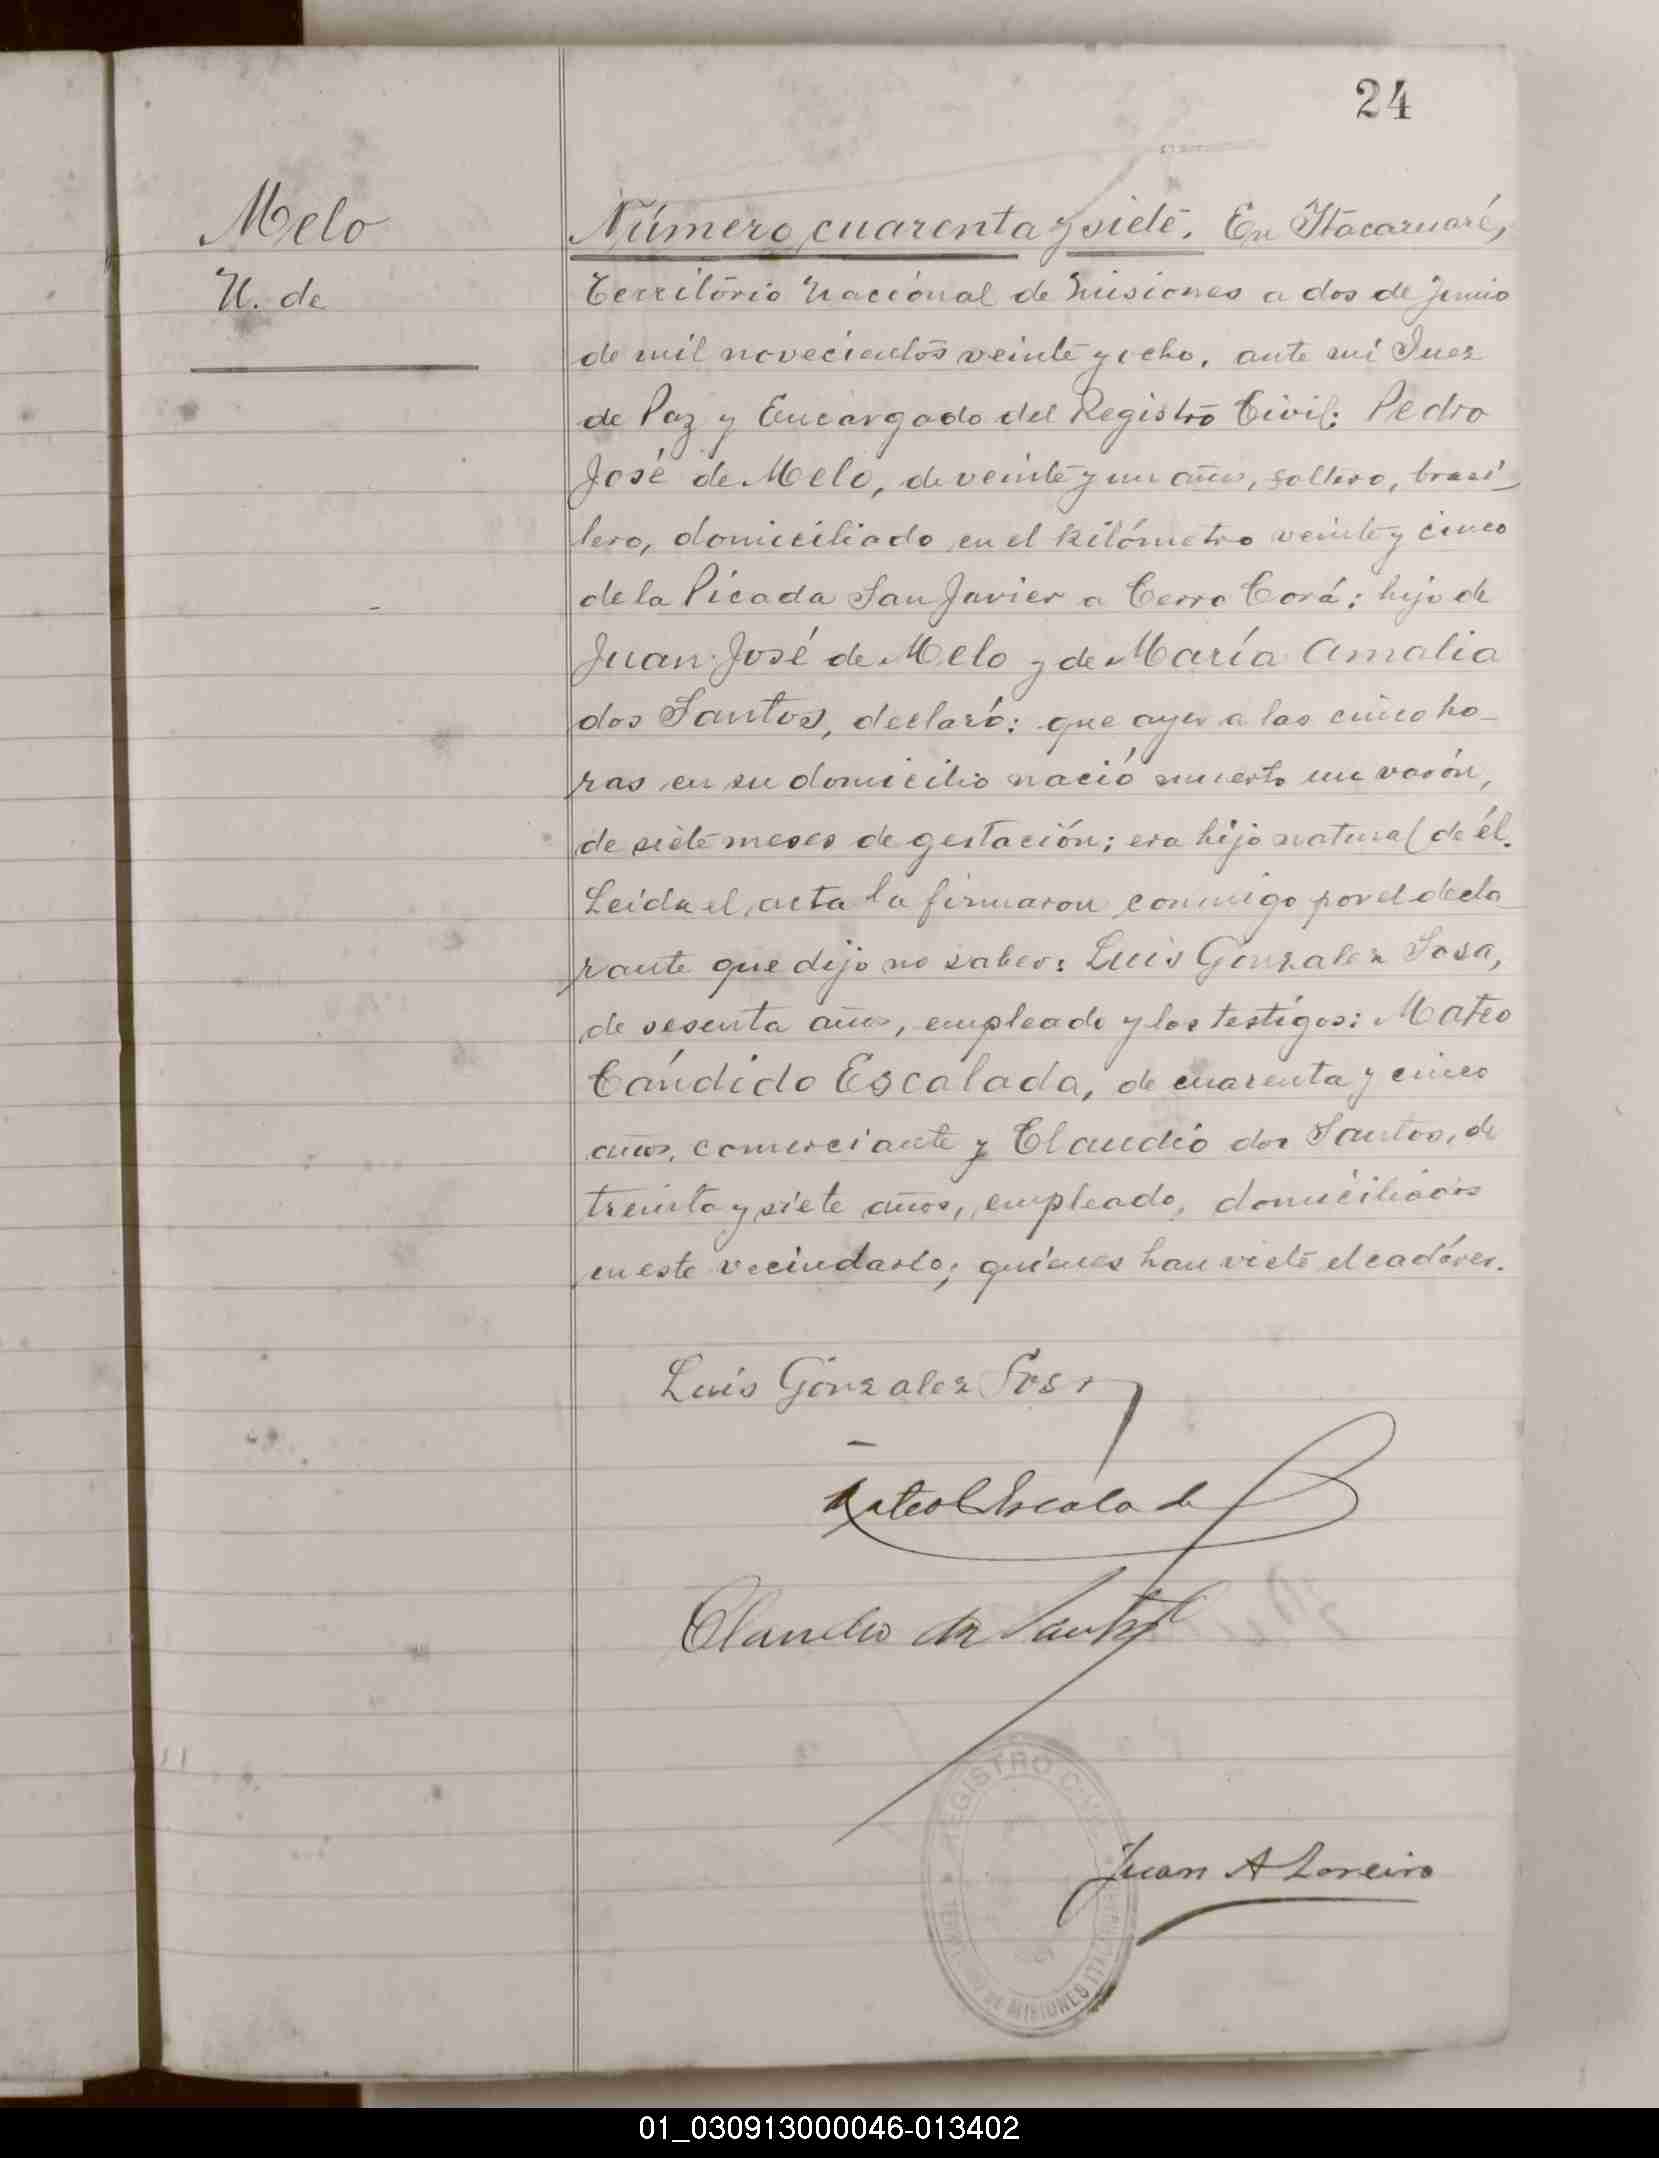 24
Melo
N. de
Número cuarenta y siete. En Itacaruaré,
Territorio Nacional de Misiones a dos de junio
de mil novecientos veinte y ocho, ante mí Juez
de Paz y Encargado del Registro Civil: Pedro
José de Melo, de veinte y un años, soltero, brasi-
lero, domiciliado en el kilómetro veinte y cinco
de la Picada San Javier a Cerro Corá; hijo de
Juan José de Melo y de María Amalia
dos Santos, declaró: que ayer a las cinco ho-
ras en su domicilio nació muerto un varón,
de siete meses de gestación; era hijo natural de él.
Leída el acta la firmaron conmigo por el decla
rante que dijo no saber: Luis Gonzalez Sosa,
de sesenta años, empleado y los testigos: Mateo
Cándido Escalada, de cuarenta y cinco
años, comerciante y Claudio dos Santos, de
treinta y siete años, empleado, domiciliados
en este vecindario; quienes han visto el cadáver.
Luis Gonzalez Sosa
Mateo C Escalada
Claudio dos Santos
REGISTRO CIVIL
DE MISIONES ITACARUARÉ
Juan A Loreiro
01_030913000046-013402